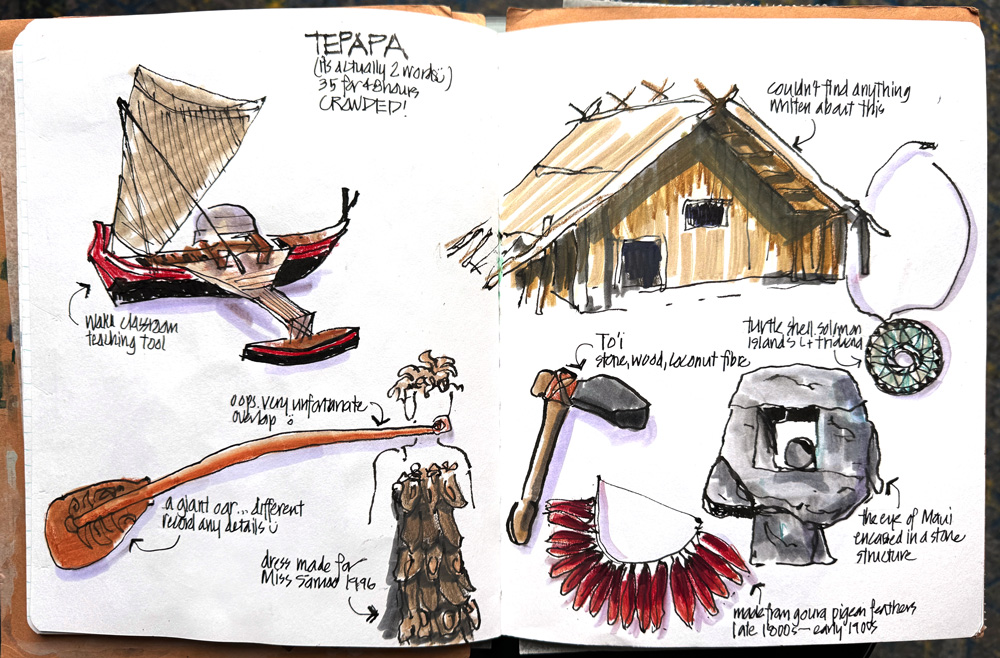 TEPAPA
(it's actually 2 words)
35 for 48 hours
CROWDED!
waka classroom
teaching tool
oops. very unfortunate
overlap
a giant oar... different
record any details
dress made for
Miss Samoa 1996
couldn't find anything
written about this
turtle shell. Solomon
Islands
To'i
stone, wood, coconut fibre
the eye of Maui
encased in a stone
structure
made from goura pigeon feathers
late 1800s — early 1900s